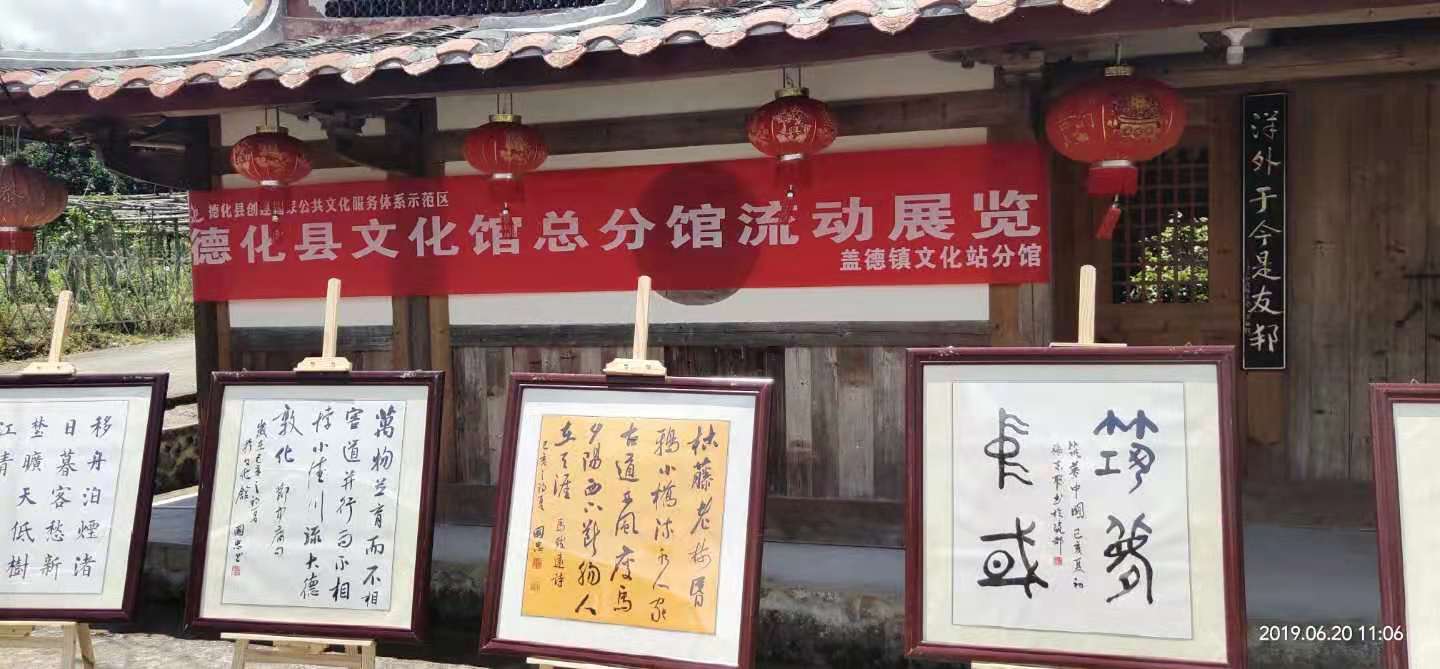 德化县创建国家公共文化服务体系示范区
德化县文化馆总分馆流动展览
盖德镇文化站分馆
洋外于今是友邦
移舟泊煙渚
日暮客愁新
埜曠天低樹
江清
萬物並育而不相
害道并行而不相
悖小德川流大德
敦化
國忠書
枯藤老樹昏
鴉小橋流水人家
古道西風瘦馬
夕陽西下斷腸人
在天涯 馬致遠詩
己亥之初夏 國忠
筑夢
中國
筑夢中國 己亥夏初
2019.06.20 11:06